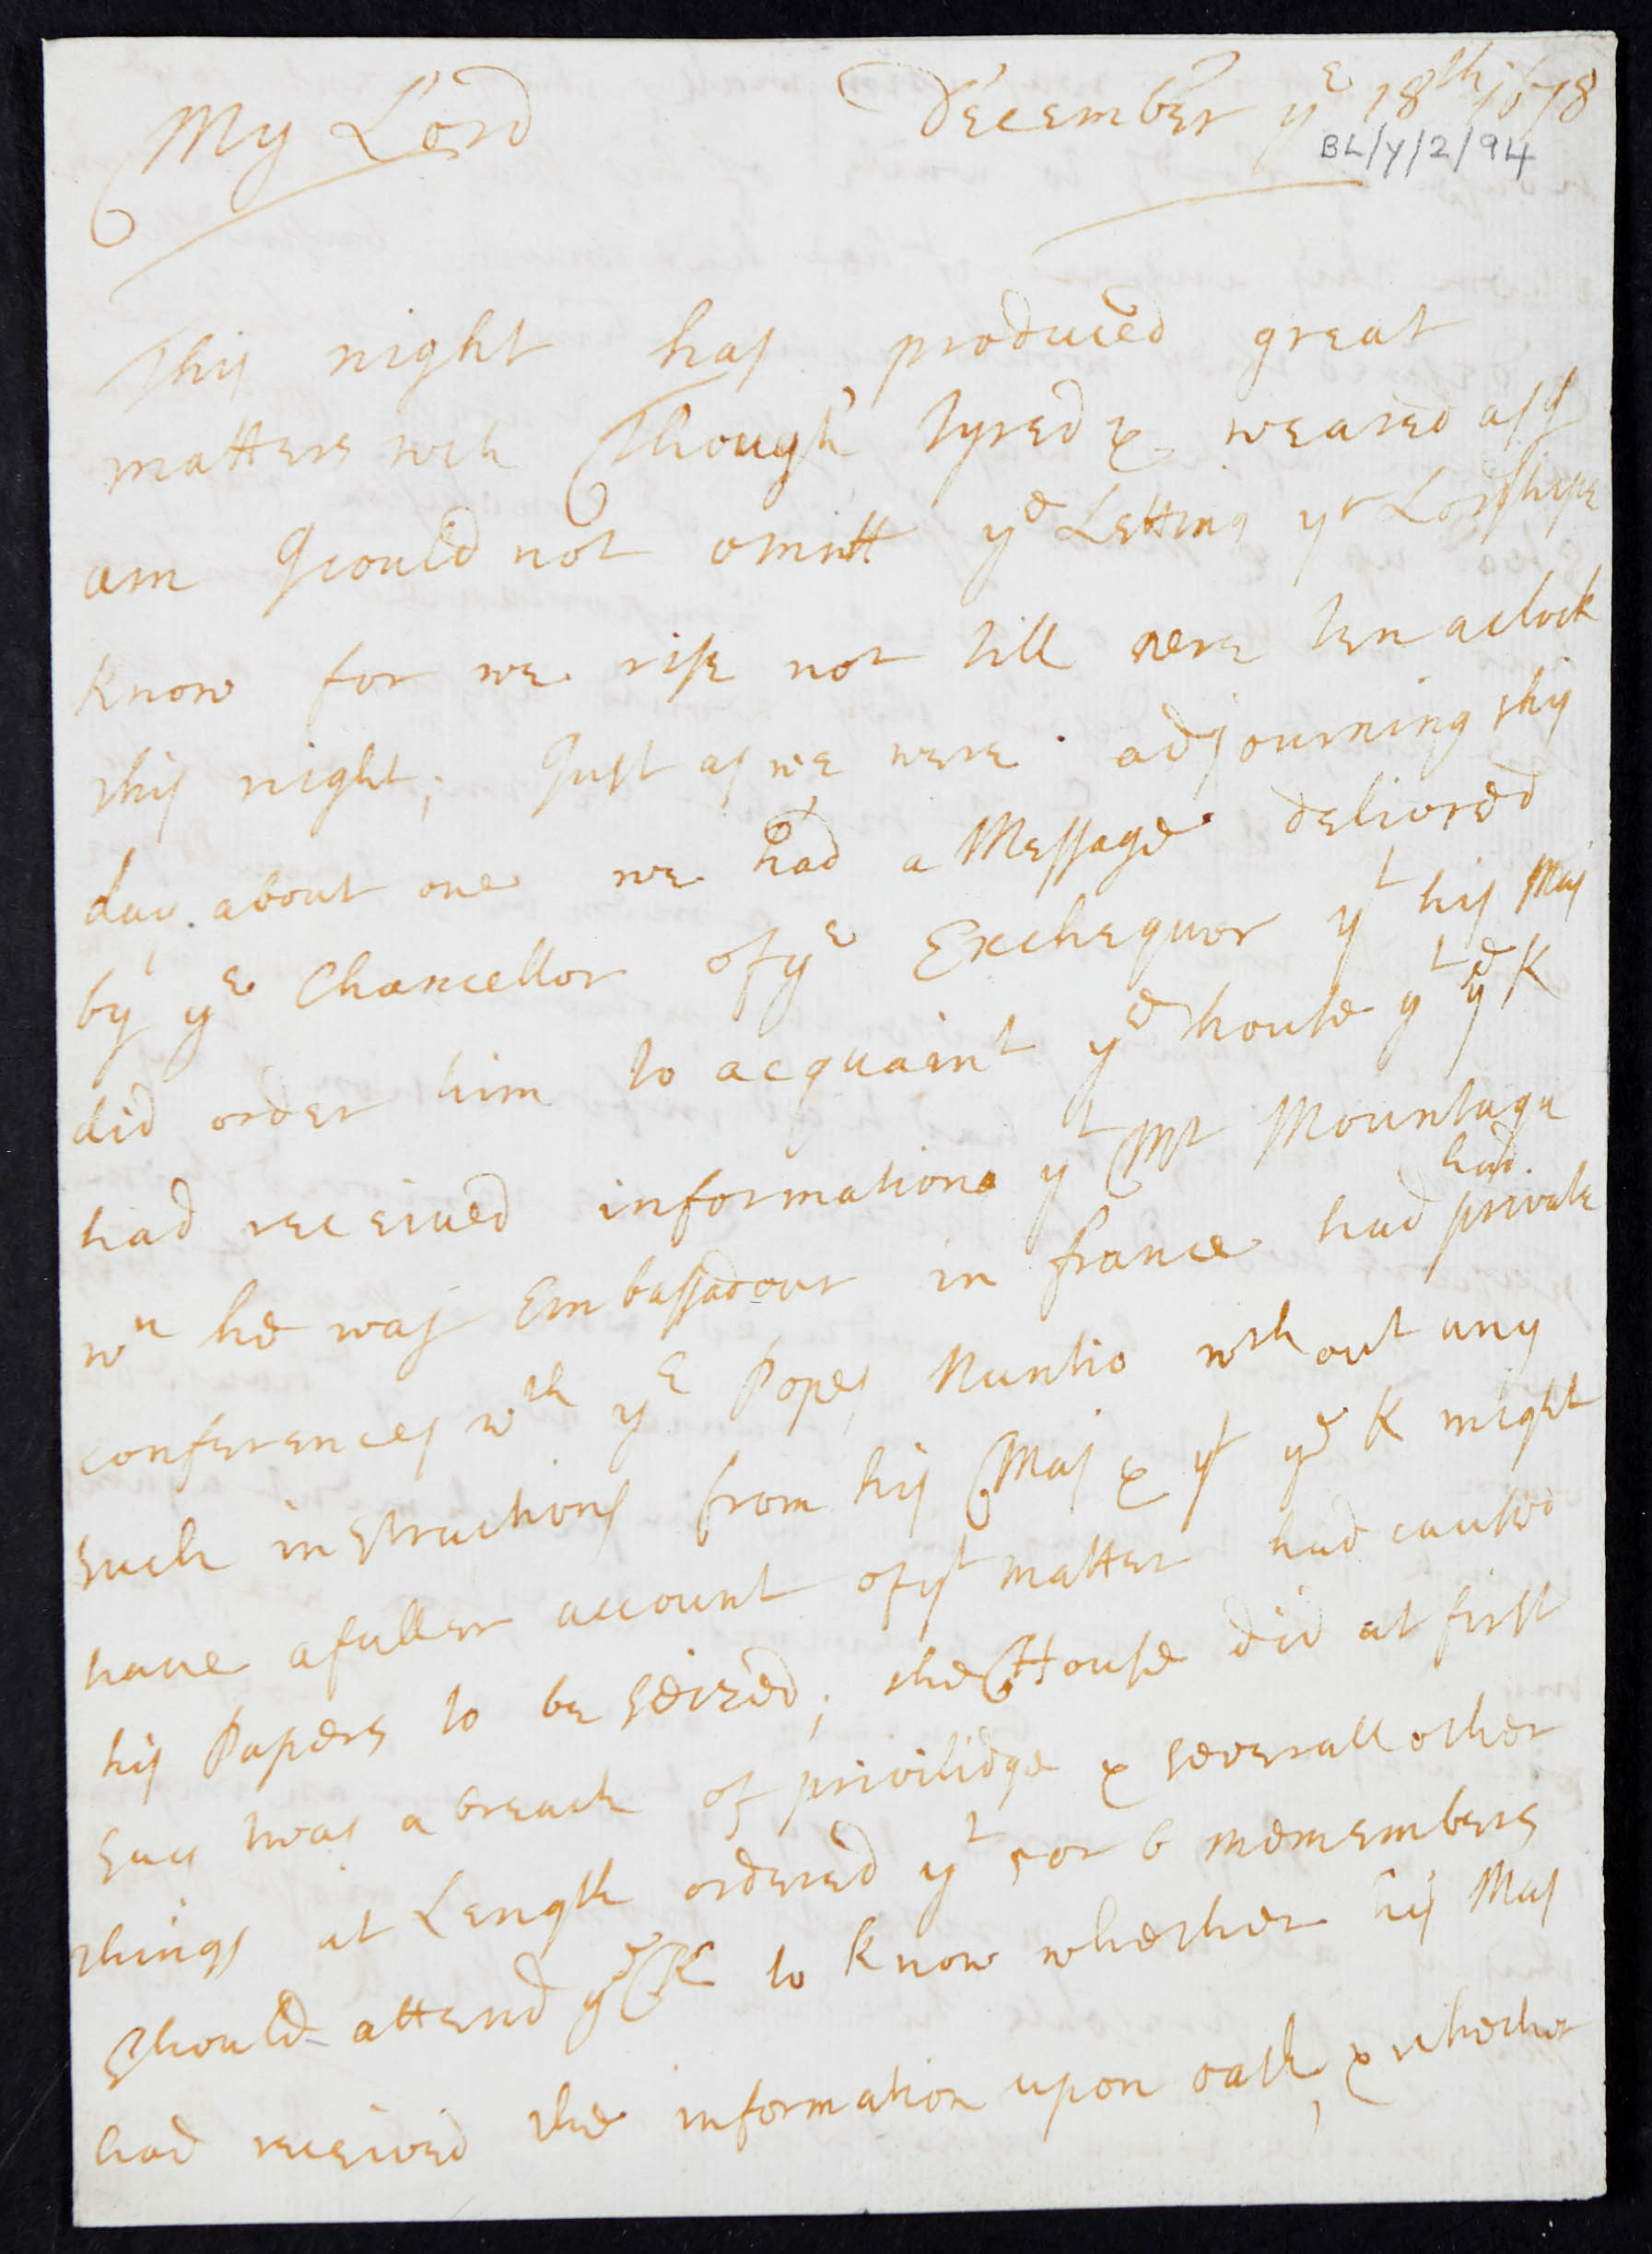 My Lord
December ye 18th 1678
BL/Y/2/94
This night has produced great
matters wch Though tyred & weared as I
am I could not omitt ye Letting yr Lordshipe
know for we rise not till nere ten aclock
this night; Just as we were adjourning this
day about one we had a Message delivred
by ye Chancellor of ye Exchequer yt his Maj
did order him to acquaint ye house yt ye K
had received information yt Mr Mountagu
had
wn he was Embassadour in france had private
conferences wth ye Popes Nuntio without any
such instructions from his Maj & yt ye K might
have a fuller account of yt matter had caused
his Papers to be seized; the House did at first
say twas a breach of priviledge & severall other
things at Length ordered yt 5 or 6 memembers
should attend ye K to know whether his Maj
had received the information upon oath, & whether